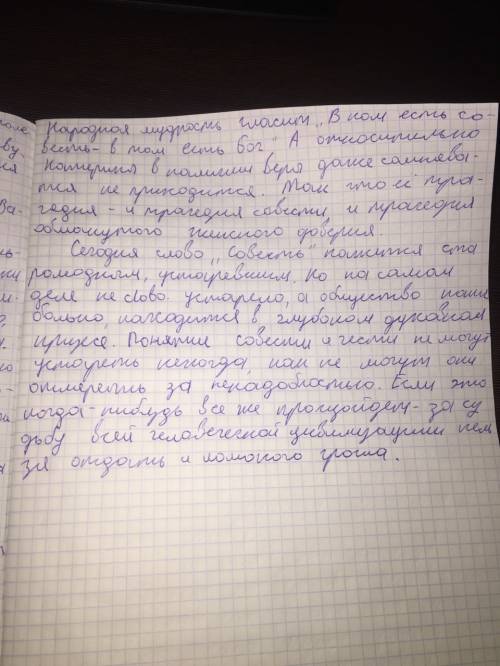 Народная мудрость гласит „В ком есть со-
весть - в том есть бог" А относительно
Катерины в наличии веры даже сомнева-
тся не приходится. Так что её тра-
гедия - и трагедия совести, и трагедия
обманутого женского доверия.
Сегодня слово „Совесть" кажится ста
ромодным, устаревшим. Но на самом
деле не слово устарело, а общество наше
больно, находится в глубоком духовном
кризисе. Понятие совести и чести не могут
устареть никогда, как не могут они
отмереть за ненадобностью. Если это
когда-нибудь все же произойдет - за су
дьбу всей человеческой цивилизации нель
зя отдать и ломоного гроша.